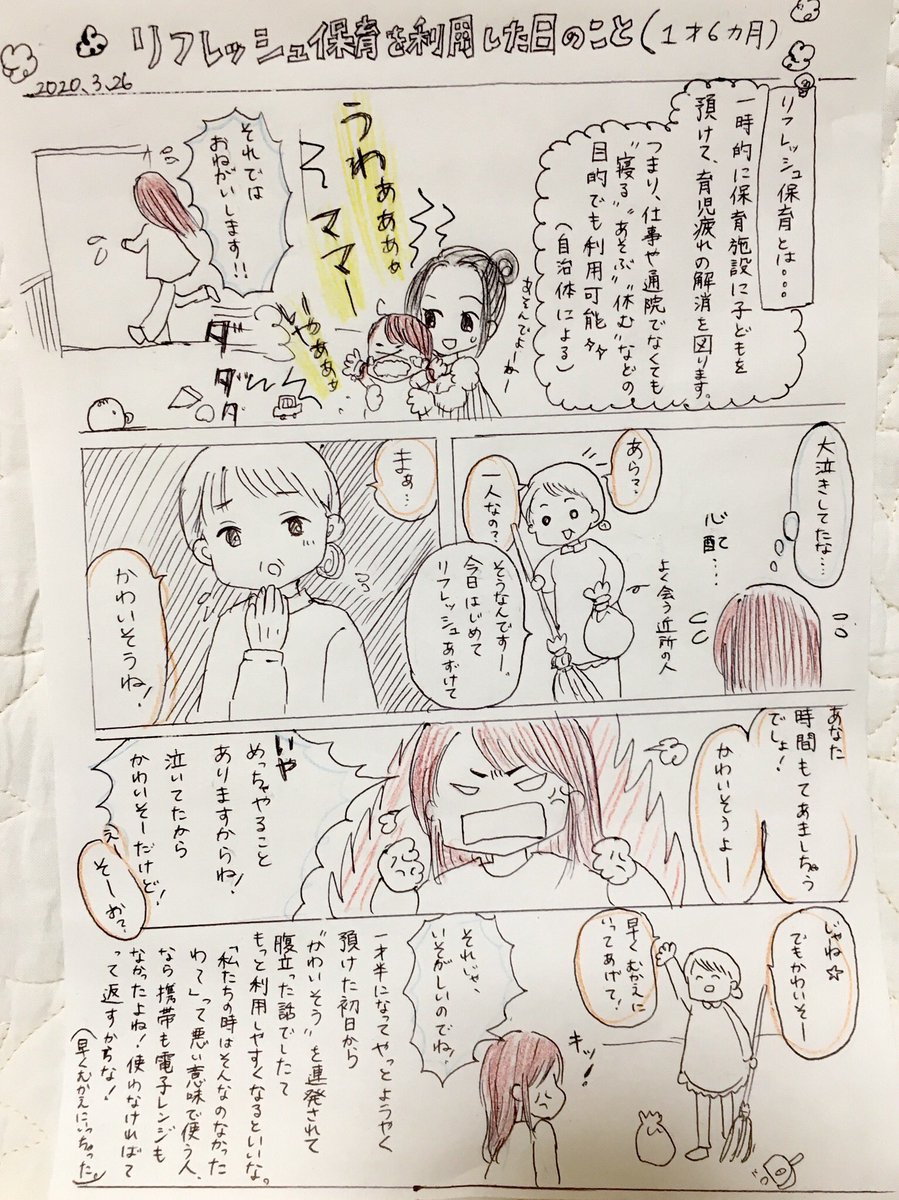 リフレッシュ保育を利用した日のこと(1才6ヵ月)
2020.3.26
リフレッシュ保育とは。。。
一時的に保育施設に子どもを
預けて、育児疲れの解消を図ります。
つまり、仕事や通院でなくても
"寝る""あそぶ""休む"などの
目的でも利用可能
(自治体による)
あそんでよーかー
うわぁぁぁぁ
ママー
いやぁぁぁ
それでは
おねがいします!!
ダダダ
大泣きしてたな…
心配…
よく会う近所の人
あら?
一人なの?
そうなんですー。
今日はじめて
リフレッシュあずけて
まぁ…
かわいそうね!
あなた
時間もてあましちゃう
でしょ!
かわいそうよー
いや
めっちゃやること
ありますからね!
泣いてたから
かわいそーだけど!
えー そーお?
じゃね☆
でもかわいそー
早くむかえに
いってあげて!
キッ!
それじゃ、
いそがしいのでね!
一才半になってやっとようやく
預けた初日から
"かわいそう"を連発されて
腹立った話でしたて
もっと利用しやすくなるといいな。
「私たちの時はそんなのなかった
わて」って悪い意味で使う人、
なら携帯も電子レンジも
なかったよね!使わなければて
って返すからな!
(早くむかえにいっちゃった)